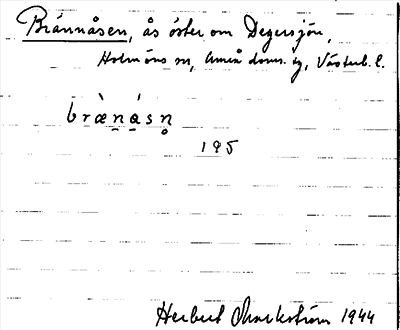 Brännåsen, ås öster om Degersjön,
Holmöns sn, Umeå doms. tg, Västerb. l.
b r æ̀ n̠ á̠ s n̥
195
Herbert Markström 1944